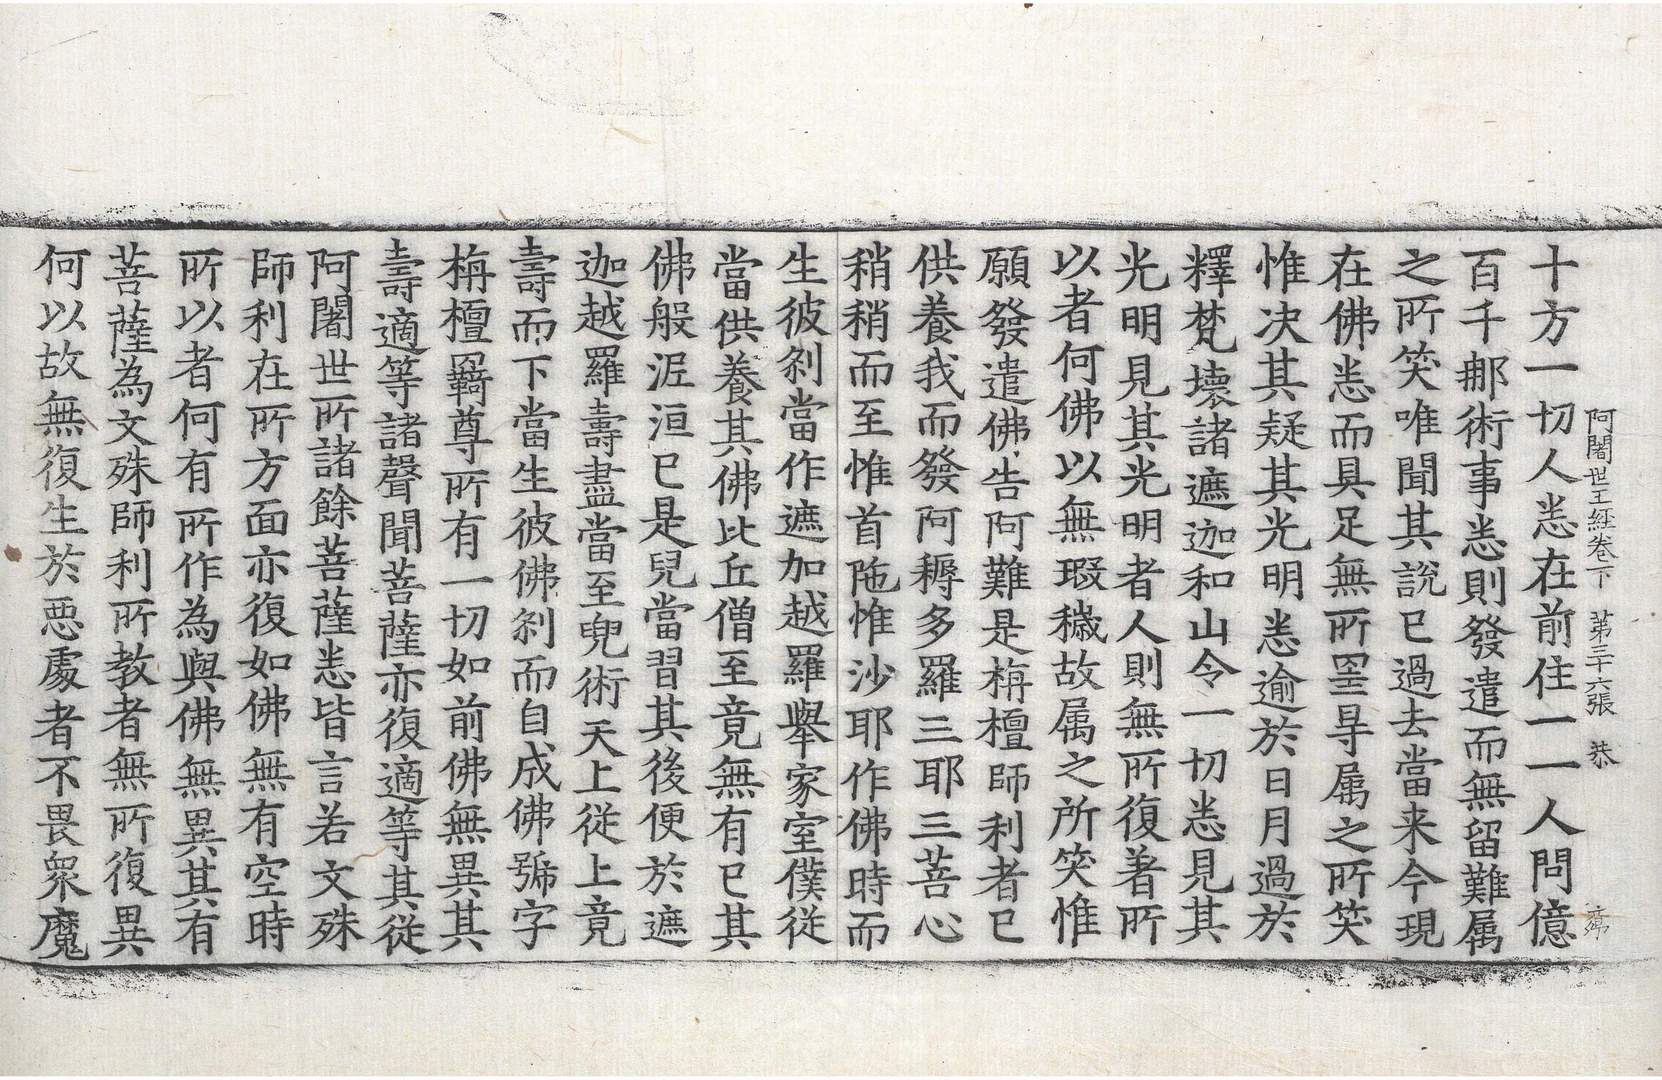 阿闍世王経卷下　第三十六張　恭
十方一切人悉在前住一一人問億
百千那術事悉則發遣而無留難属
之所笑唯聞其說已過去當来今現
在佛悉而具足無所罣㝵属之所笑
惟决其疑其光明悉逾於日月過於
釋梵壞諸遮迦和山令一切悉見其
光明見其光明者人則無所復著所
以者何佛以無瑕穢故属之所笑惟
願發遣佛告阿難是栴檀師利者已
供養我而發阿耨多羅三耶三菩心
稍稍而至惟首陁惟沙耶作佛時而
生彼刹當作遮加越羅舉家室僕従
當供養其佛比丘僧至竟無有已其
佛般泥洹已是兒當習其後便於遮
迦越羅壽盡當至兜術天上従上竟
壽而下當生彼佛刹而自成佛號字
栴檀羈尊所有一切如前佛無異其
壽適等諸聲聞菩薩亦復適等其従
阿闍世所諸餘菩薩悉皆言若文殊
師利在所方面亦復如佛無有空時
所以者何有所作為與佛無異其有
菩薩為文殊師利所教者無所復異
何以故無復生於惡處者不畏衆魔